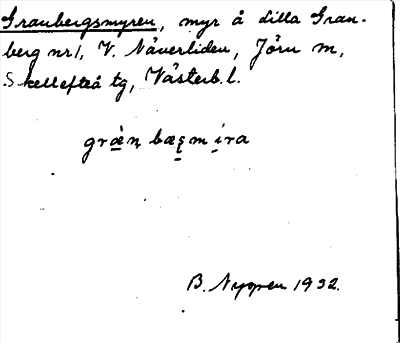 Granbergsmyren, myr å lilla Gran-
berg nr 1, V. Näverliden, Jörn sn,
Skellefteå tg, Västerb. l.
græ̀n bæșmi̯ra
B. Nygren 1932.